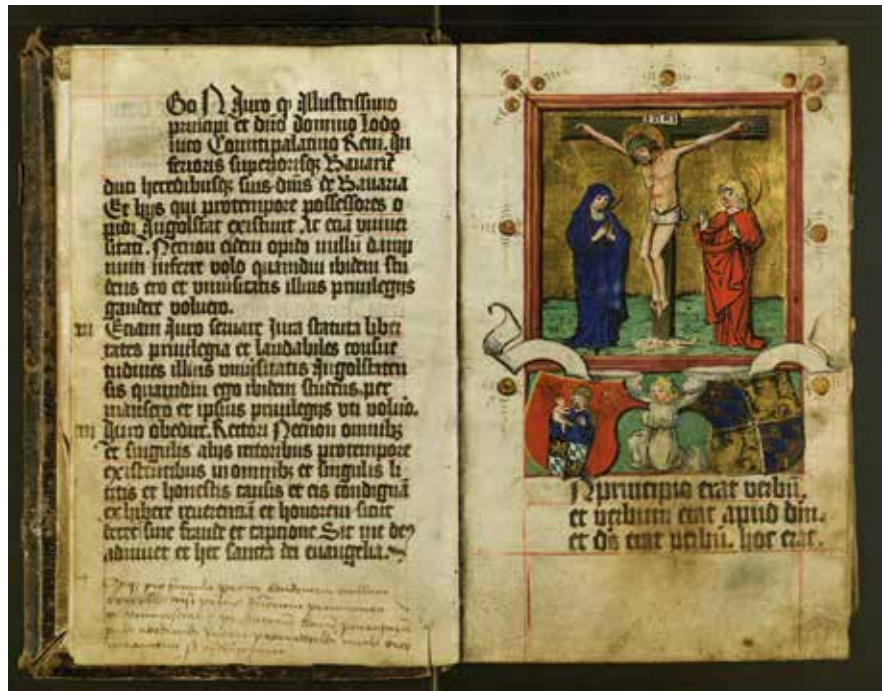 Go N Juro qꝫ Illustrissimo
principi et dño domino lodo
uico Comitipalatino Reni. In
ferioris superiorisqꝫ Bauarie
duci heredibusqꝫ suis dnis de Bauaria
Et hijs qui protempore possessores o
pidi Ingolstat existunt Ac eciā vniuer
sitati. Necnon eidem opido nullū damp
num inferre volo quamdiu ibidem stu
dens ero et vniūsitatis illius priuilegijs
gaudere voluero.
Etiam Juro seruare Jura statuta liber
tates priuilegia et laudabiles consue
tudines illius vniūsitatis Ingolstaten
sis quamdiu ego ibidem studens per
mansero et ipsius priuilegijs vti voluīo.
Juro obedire Rectori Necnon omnibꝫ
et singulis alijs rectoribus protempore
existentibus in omnibꝫ et singulis li
citis et honestis causis et eis condignā
exhibere reuerenciā et honorem sicut
sine fraude et capcione Sic me deꝯ
adiuuet et hec sancta dei euangelia.
3
INRI
N principio erat verbū.
et verbum erat apud dm̄.
et dꝰs erat verbū. hoc erat.